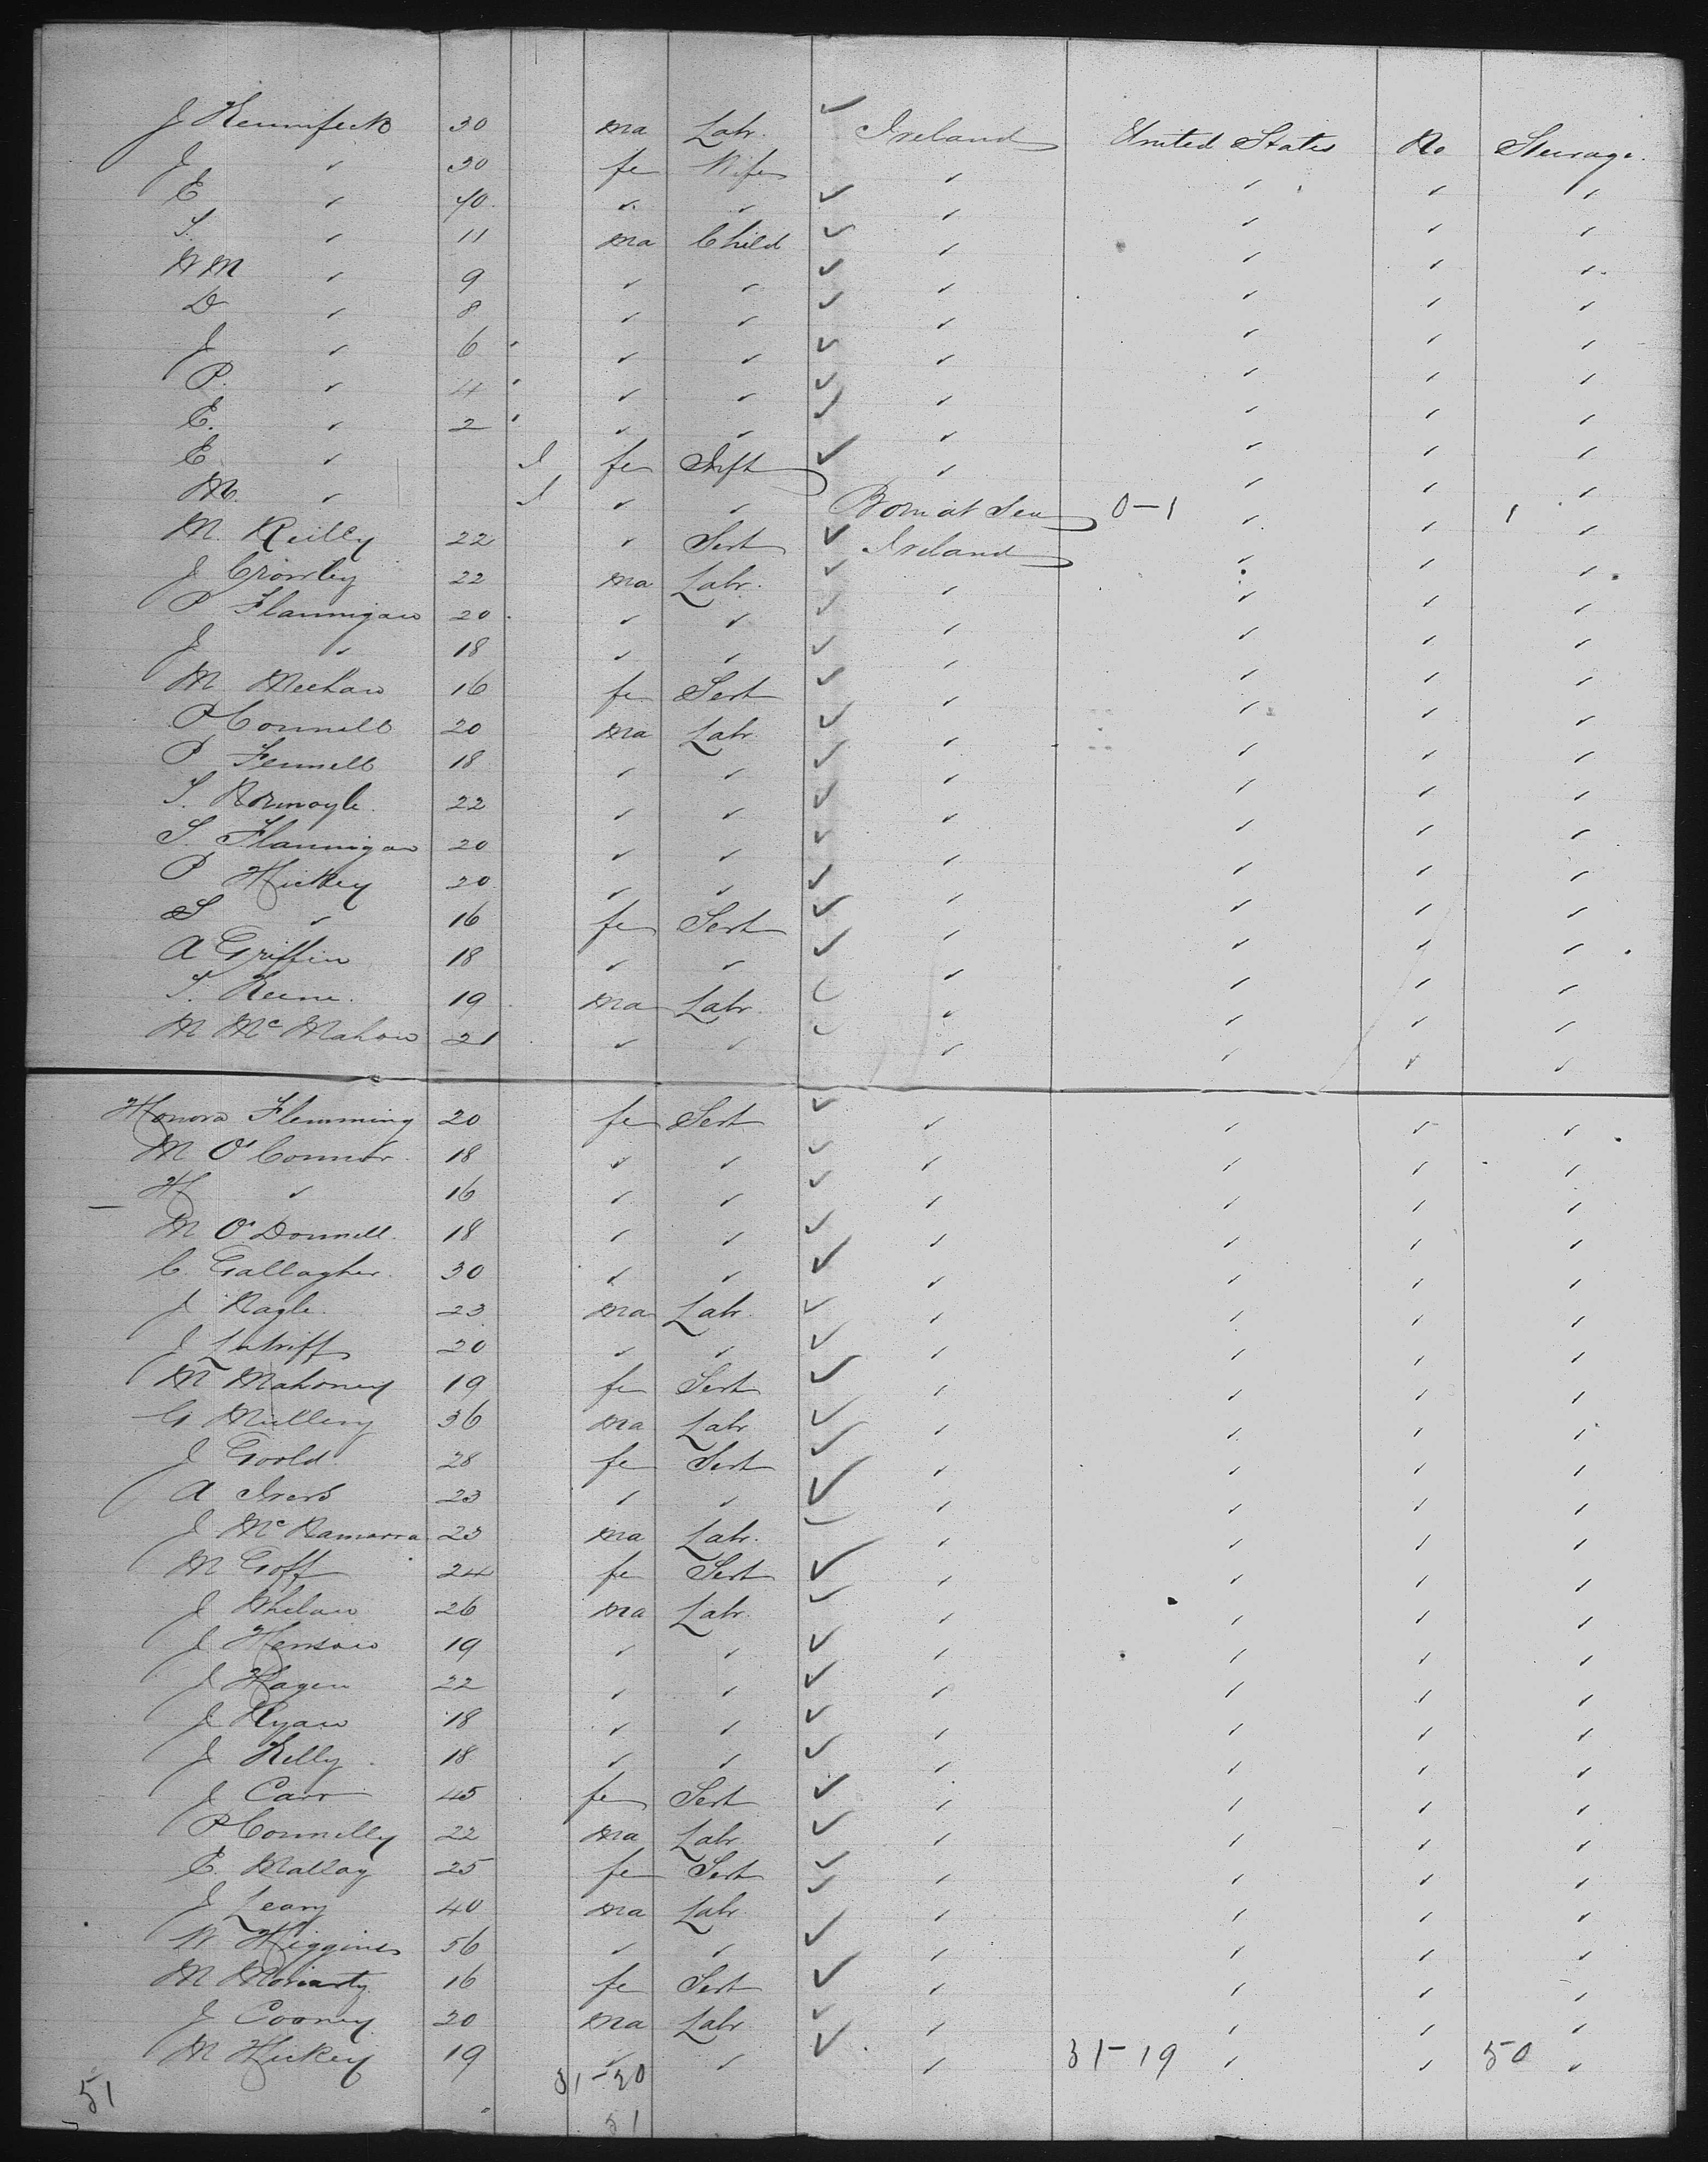 J Kennifeck 30 ma Labr. ✓ Ireland United States No Steerage.
J ✓ 30 fe Wife ✓ ✓ ✓ ✓
E ✓ 40 ✓ ✓ ✓ ✓ ✓ ✓ ✓
T. ✓ 11 ma Child ✓ ✓ ✓ ✓ ✓
Wm ✓ 9 ✓ ✓ ✓ ✓ ✓ ✓ ✓
D ✓ 8 ✓ ✓ ✓ ✓ ✓ ✓ ✓
J ✓ 6 ✓ ✓ ✓ ✓ ✓ ✓ ✓
P. ✓ 4 ✓ ✓ ✓ ✓ ✓ ✓ ✓
E. ✓ 2 ✓ ✓ ✓ ✓ ✓ ✓ ✓
E ✓ I fe Inft ✓ ✓ ✓ ✓ ✓
M. ✓ I ✓ ✓ Born at Sea 0-1 ✓ ✓ 1 ✓
M. Reilly 22 ✓ Sert ✓ Ireland ✓ ✓ ✓
J Crowley 22 ma Labr. ✓ ✓ ✓ ✓ ✓
P Flannigan 20 ✓ ✓ ✓ ✓ ✓ ✓ ✓
J ✓ 18 ✓ ✓ ✓ ✓ ✓ ✓ ✓
M Meehan 16 fe Sert ✓ ✓ ✓ ✓ ✓
P Connell 20 ma Labr ✓ ✓ ✓ ✓ ✓
P Fennell 18 ✓ ✓ ✓ ✓ ✓ ✓ ✓
T. 22 ✓ ✓ ✓ ✓ ✓ ✓ ✓
S. Flannigan 20 ✓ ✓ ✓ ✓ ✓ ✓ ✓
P Hickey 20 ✓ ✓ ✓ ✓ ✓ ✓ ✓
S ✓ 16 fe Sert ✓ ✓ ✓ ✓ ✓
A Griffin 18 ✓ ✓ ✓ ✓ ✓ ✓ ✓
T. Keene. 19 ma Labr. ✓ ✓ ✓ ✓ ✓
M McMahon 21 ✓ ✓ ✓ ✓ ✓ ✓ ✓
Honora Flemming 20 fe Sert ✓ ✓ ✓ ✓ ✓
M O'Connor 18 ✓ ✓ ✓ ✓ ✓ ✓ ✓
H ✓ 16 ✓ ✓ ✓ ✓ ✓ ✓ ✓
M O'Donnell. 18 ✓ ✓ ✓ ✓ ✓ ✓ ✓
C. Gallagher. 30 ✓ ✓ ✓ ✓ ✓ ✓ ✓
J Nagle. 23 ma Labr. ✓ ✓ ✓ ✓ ✓
J 20 ✓ ✓ ✓ ✓ ✓ ✓ ✓
M Mahoney 19 fe Sert ✓ ✓ ✓ ✓ ✓
G Mullery 36 ma Labr ✓ ✓ ✓ ✓ ✓
J Goold 28 fe Sert ✓ ✓ ✓ ✓ ✓
A Ivers 23 ✓ ✓ ✓ ✓ ✓ ✓ ✓
J McNamarra 23 ma Labr. ✓ ✓ ✓ ✓ ✓
M Goff 24 fe Sert ✓ ✓ ✓ ✓ ✓
J Whelan 26 ma Labr. ✓ ✓ ✓ ✓ ✓
J Henson 19 ✓ ✓ ✓ ✓ ✓ ✓ ✓
J Hagen 22 ✓ ✓ ✓ ✓ ✓ ✓ ✓
J Ryan 18 ✓ ✓ ✓ ✓ ✓ ✓ ✓
J Kelly 18 ✓ ✓ ✓ ✓ ✓ ✓ ✓
J Carr 45 fe Sert ✓ ✓ ✓ ✓ ✓
P Connelly 22 ma Labr. ✓ ✓ ✓ ✓ ✓
E. Malloy 25 fe Sert ✓ ✓ ✓ ✓ ✓
J Leary 40 ma Labr. ✓ ✓ ✓ ✓ ✓
W Higgins 56 ✓ ✓ ✓ ✓ ✓ ✓ ✓
M Moriarty 16 fe Sert ✓ ✓ ✓ ✓ ✓
J Cooney 20 ma Labr ✓ ✓ ✓ ✓ ✓
M Hickey 19 ✓ ✓ ✓ ✓ 31-19 ✓ ✓ 50 ✓
51 31-20
51